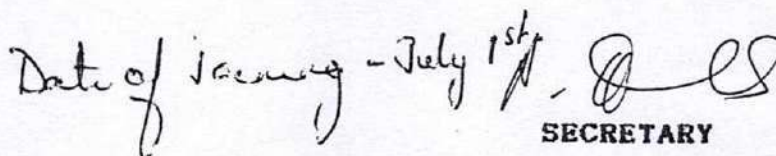 Date of issuing - July 1st.
SECRETARY